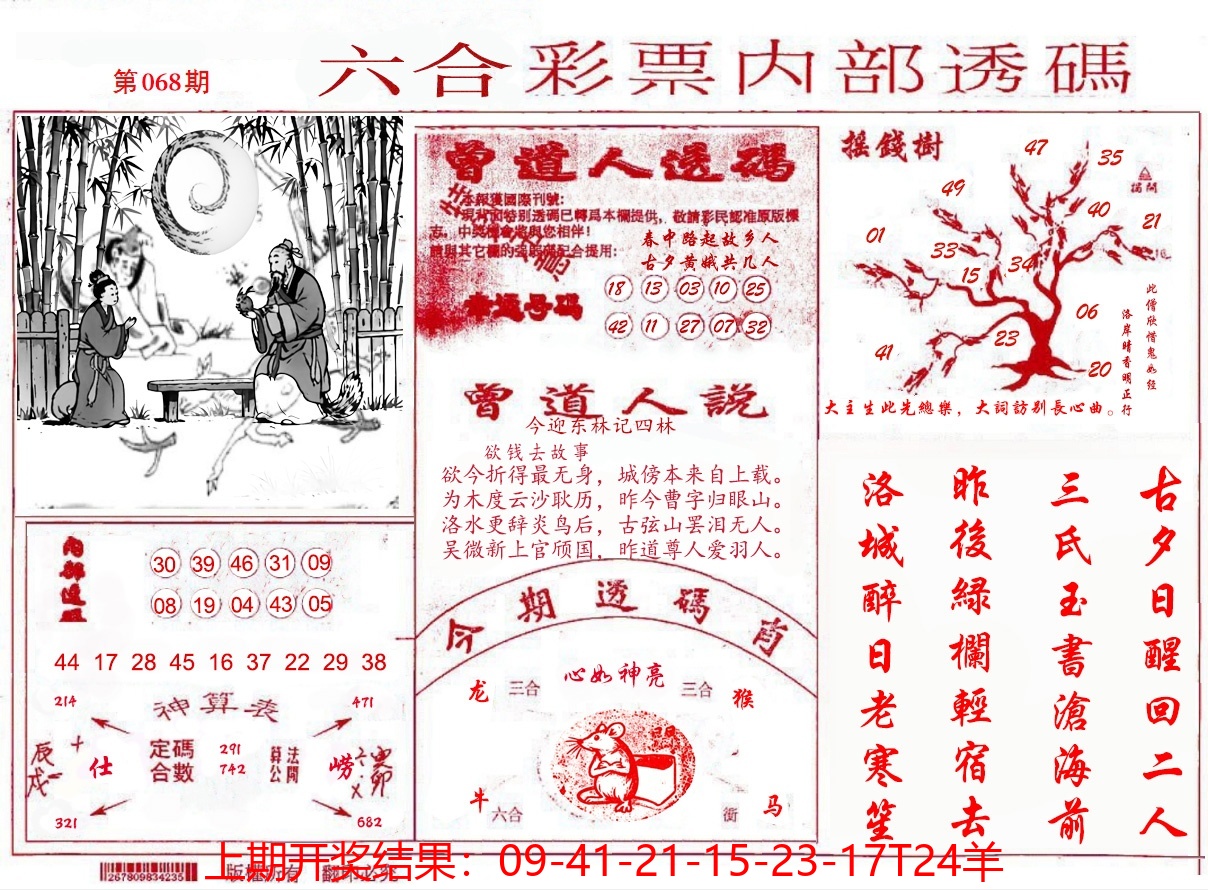 第068期
六合彩票内部透碼
曾道人透碼
本報獲國際刊號:
現背面特别透碼已轉爲本欄提供，敬請彩民認准原版標
志，中獎機會將與您相伴!
請與其它欄的强弱碼配合提用:
春中路起故乡人
古夕黄娥共几人
幸運号碼
18 13 03 10 25
42 11 27 07 32
曾道人説
今迎东林记四林
欲钱去故事
欲今折得最无身，城傍本来自上载。
为木度云沙耿历，昨今曹字归眼山。
洛水更辞炎鸟后，古弦山罢泪无人。
吴微新上官颀国，昨道尊人爱羽人。
摇錢樹
47
35
49
40
21
01
33
34
15
06
23
41
20
此僧欣惜鬼如经
洛岸晴香明正行
大主生此先總樂，大詞訪别長心曲。
古夕日醒回二人
三氏玉書滄海前
昨後緑欄輕宿去
洛城醉日老寒笙
内部透碼
30 39 46 31 09
08 19 04 43 05
44 17 28 45 16 37 22 29 38
214
471
神算表
定碼
合數
291
742
法開
算公
仕
崂
辰戌
寅卯
321
682
今期透碼肖
心如神亮
龙
三合
三合
猴
牛
六合
衝
马
267809834235
版權所有 翻印必究
上期开奖结果：09-41-21-15-23-17T24羊